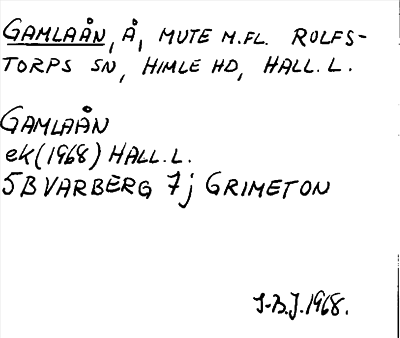 GAMLAÅN, Å, MUTE M.FL. ROLFS-
TORPS SN, HIMLE HD, HALL. L.
GAMLAÅN
ek(1968) HALL.L.
5B VARBERG 7j GRIMETON
J-B.J.1968.